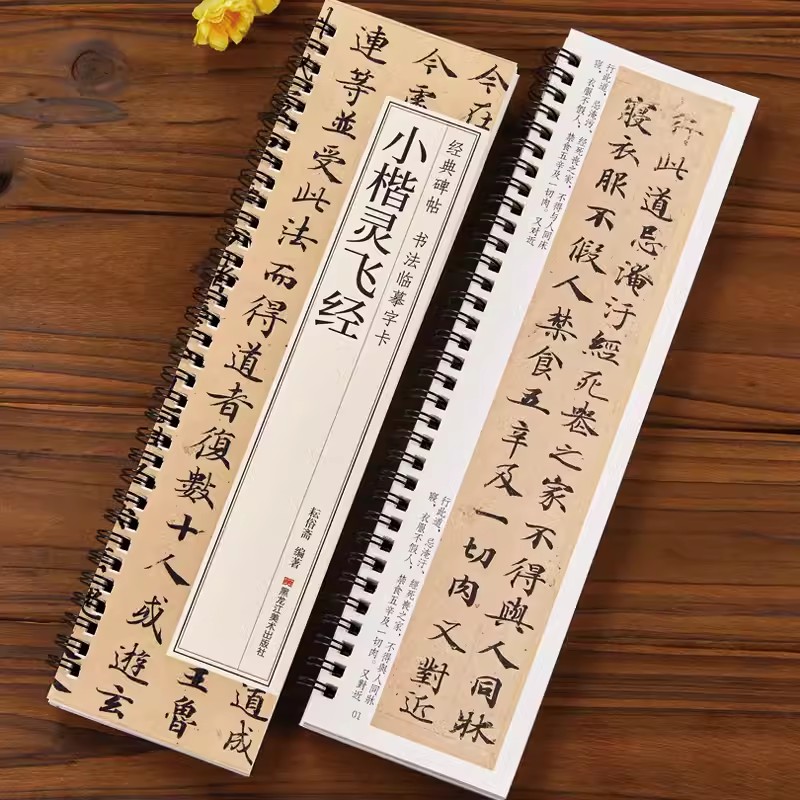 今在
道成
今
主魯
連等並受此法而得道者復數十人或遊玄
经典碑帖 书法临摹字卡
小楷灵飞经
编著
黑龙江美术出版社
行此道,忌淹污、经死丧之家,不得与人同床
寝,衣服不假人,禁食五辛及一切肉。又对近
行此道忌淹汙經死喪之家不得與人同牀
寢衣服不假人禁食五辛及一切肉又對近
行此道,忌淹汙、經死喪之家,不得與人同牀
寢,衣服不假人,禁食五辛及一切肉。又對近
01